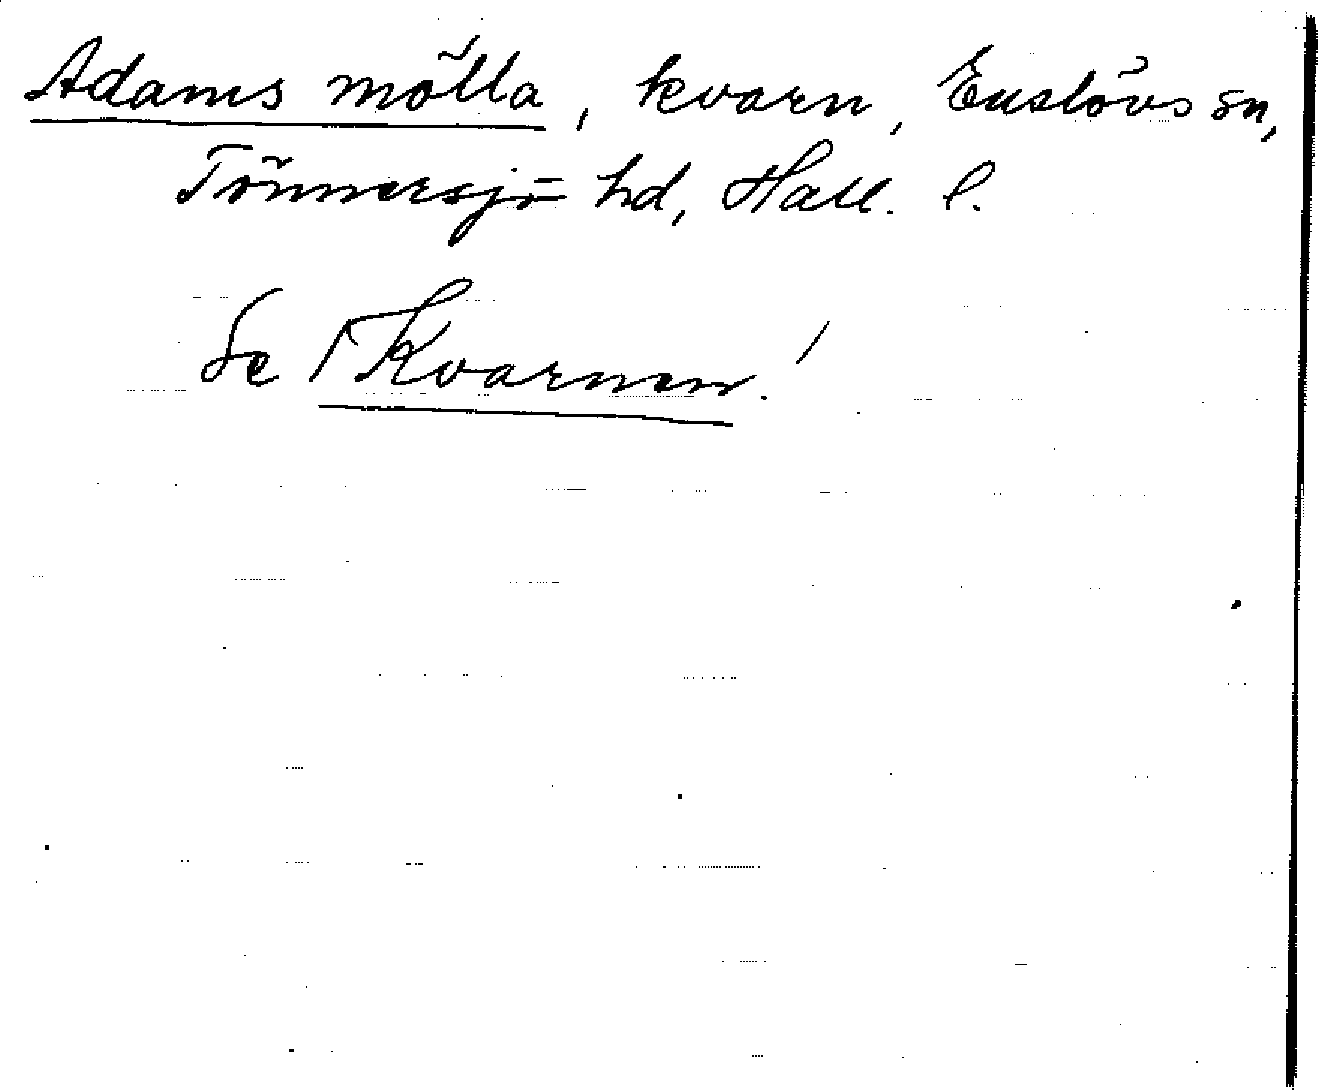 Adams mölla, kvarn, Enslövs sn,
Tönnersjö hd, Hall. l.
Se /Kvarnen./